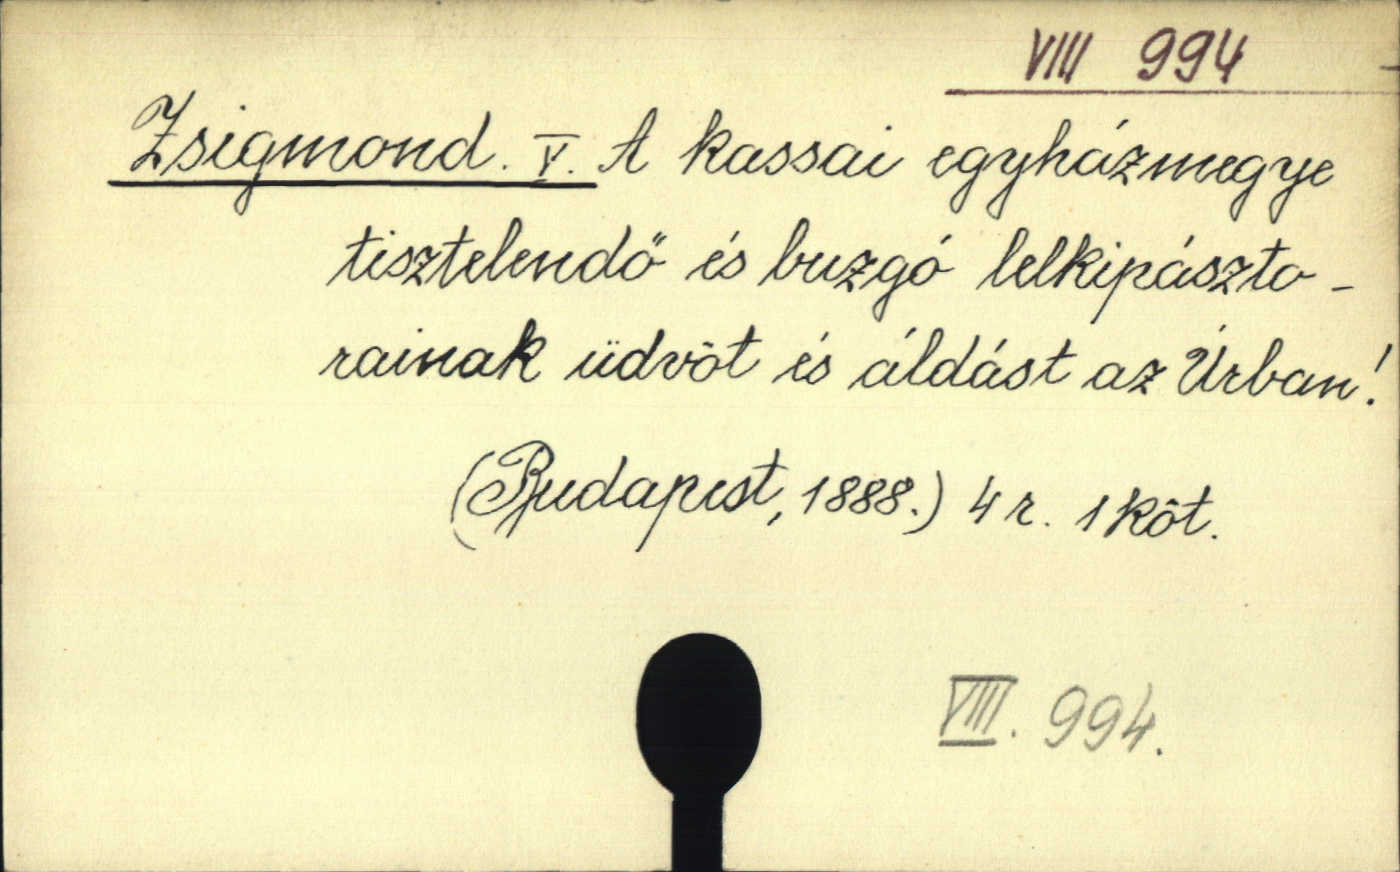 VIII 994
Zsigmond. V. A kassai egyházmegye
tisztelendő és buzgó lelkipászto-
rainak üdvöt és áldást az Úrban!
(Budapest, 1888.) 4 r. 1 köt.
VIII. 994.